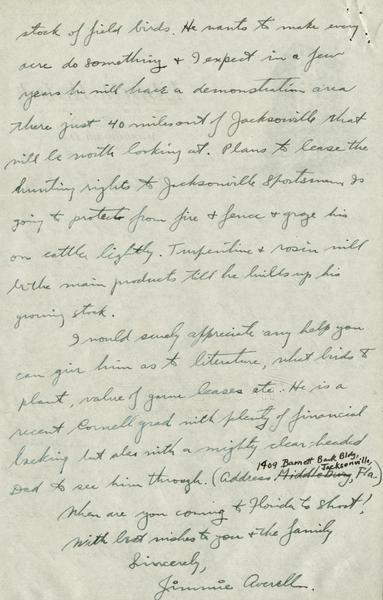 stock of field birds. He wants to make every
acre do something & I expect in a few
years he will have a demonstration area
there just 40 miles out of Jacksonville that
will be worth looking at. Plans to lease the
hunting rights to Jacksonville Sportsmen Is
going to protect from fire & fence & graze his
own cattle lightly. Turpentine & rosin will
be the main products till he builds up his
growing stock.
I would surely appreciate any help you
can give him as to literature, what birds to
plant, value of game leases etc. He is a
recent Cornell grad with plenty of financial
backing but also with a mighty clear-headed
1409 Barnett Bank Bldg,
Jacksonville,
Dad to see him through. (Address Middleburg, Fla.)
When are you coming to Florida to shoot!
With best wishes to you & the family
Sincerely,
Jimmie Averell.